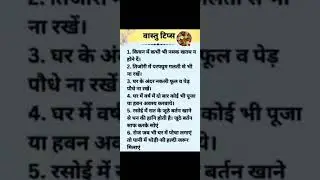 वास्तु टिप्स
1. किचन में कभी भी नमक खतम न
होने दें।
2. तिजोरी में परफ्यूम गलती से भी
ना रखें।
3. घर के अंदर नकली फूल व पेड़
पौधे ना रखें।
4. घर में वर्ष में दो बार कोई भी पूजा
या हवन अवश्य करवाये।
5. रसोई में रात के जूठे बर्तन खाने
से धन की हानि होती है। जूठे बर्तन
साफ करके सोएं
6. रोज जब भी घर में पोचा लगाएं
तो पानी में थोड़ी-सी हल्दी जरूर
मिलाएं
ना रखें।
3. घर के
पौधे ना
4. घर में
या हवन
5. रसोई में
फूल व पेड़
भी पूजा
बर्तन खाने